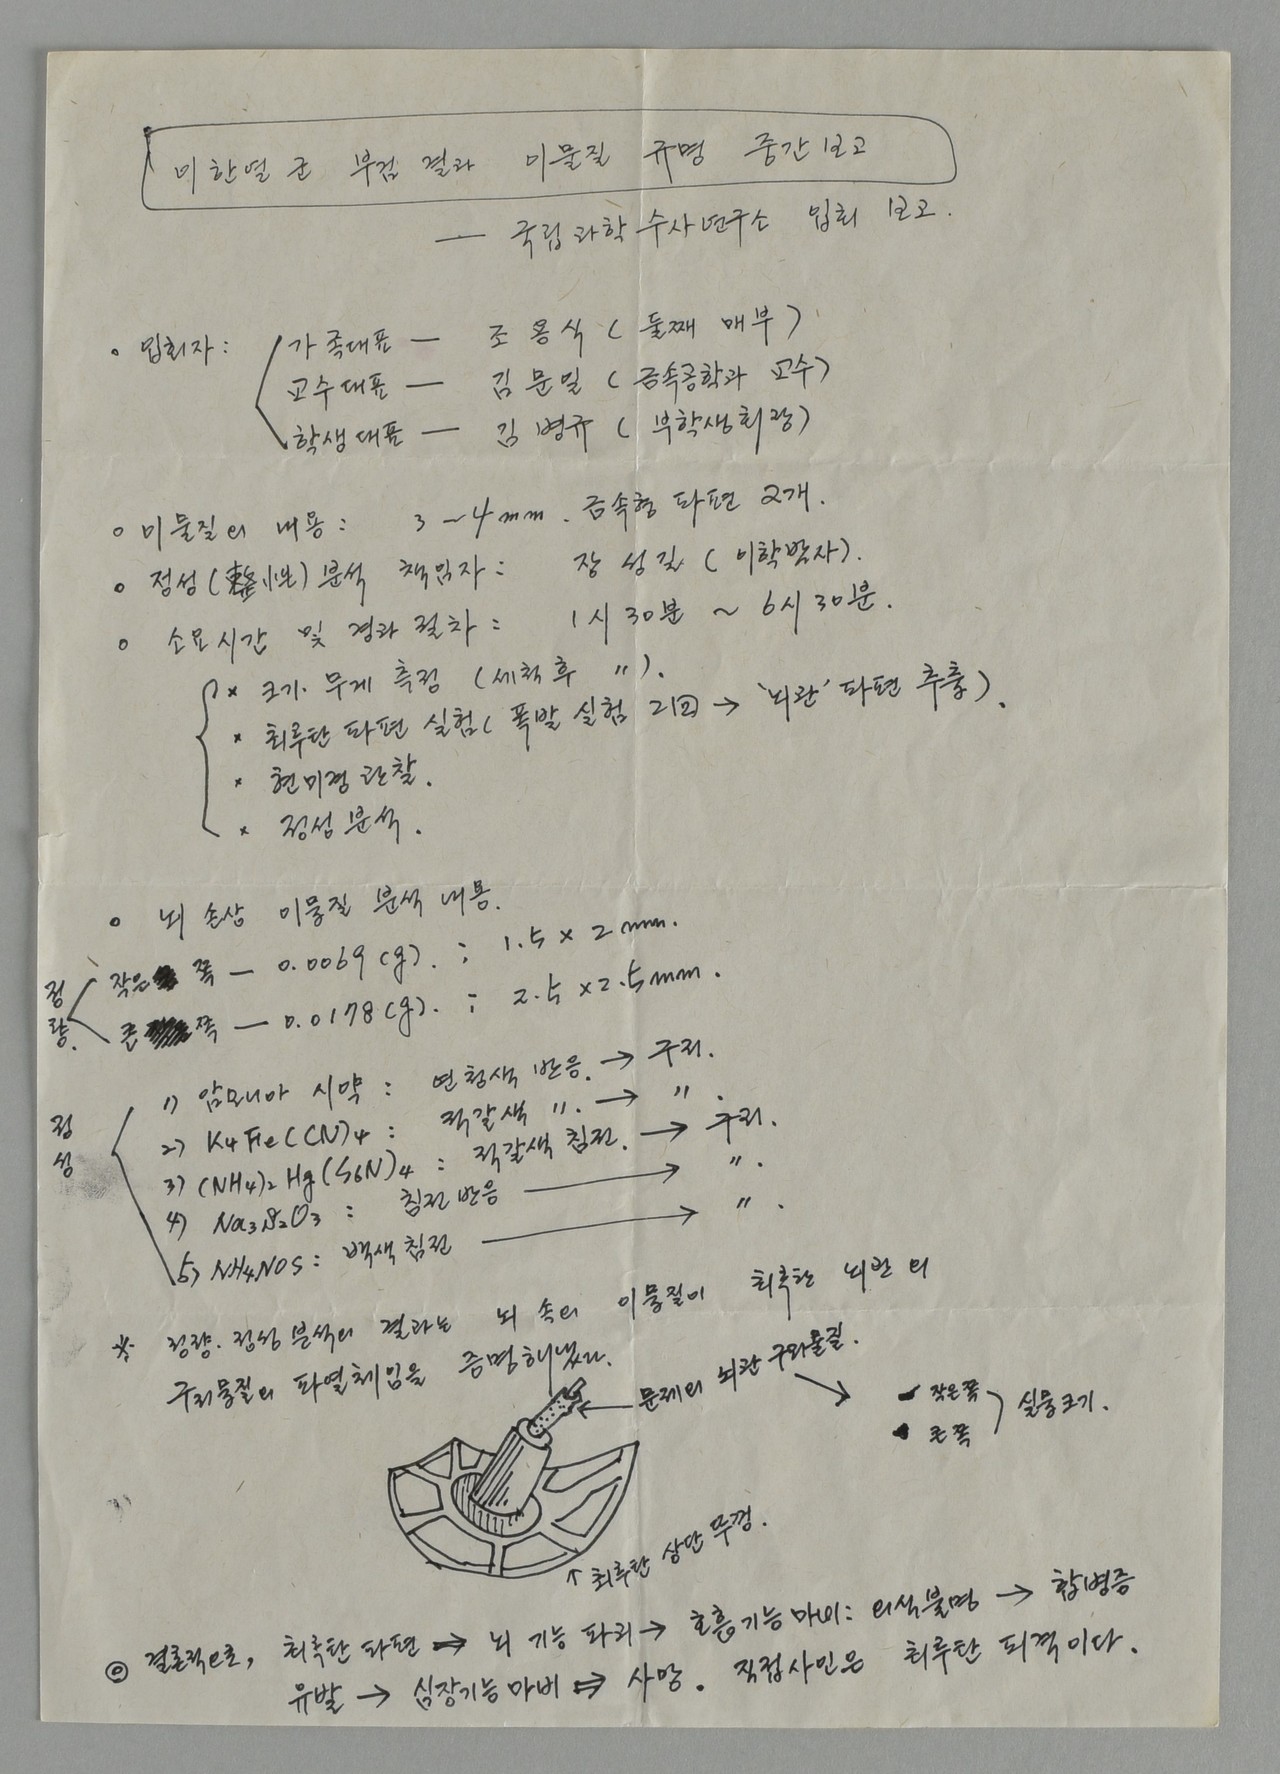 이한열 군 부검 결과 이물질 규명 중간보고
— 국립과학수사연구소 입회 보고.
◦ 입회자 :
가족대표 — 조용식 ( 둘째 매부 )
교수대표 — 김문일 ( 금속공학과 교수 )
학생대표 — 김병규 ( 부학생회장 )
◦ 이물질의 내용 : 3 ~ 4 mm. 금속형 파편 2개.
◦ 정성( 性) 분석 책임자 : 장성길 ( 이학박사 ).
◦ 소요시간 및 경과 절차 : 1시 30분 ~ 6시 30분.
× 크기·무게 측정 (세척 후 〃 ).
× 최루탄 파편 실험 ( 폭발 실험 2回 → '뇌관' 파편 추출 ).
× 현미경 관찰.
× 정성 분석.
◦ 뇌 손상 이물질 분석 내용.
정량.
작은 쪽 — 0.0069 (g). ; 1.5 × 2 mm.
큰 쪽 — 0.0178 (g). ; 2.5 × 2.5 mm.
정성
1) 암모니아 시약 : 연청색 반응. → 구리.
2) K4Fe(CN)4 : 적갈색 〃. → 〃.
3) (NH4)2Hg(S6N)4 : 적갈색 침전. → 구리.
4) Na3S2O3 : 침전 반응 → 〃.
5) NH4NOS : 백색 침전 → 〃.
※ 정량·정성 분석의 결과는 뇌 속의 이물질이 최루탄 뇌관의
구리물질의 파열체임을 증명해냈다.
← 문제의 뇌관 구리물질.
작은쪽
큰쪽
실물크기.
↑ 최루탄 상단 뚜껑.
◎ 결론적으로, 최루탄 파편 ⇒ 뇌 기능 파괴 → 호흡기능 마비 : 의식불명 → 합병증
유발 → 심장기능마비 ⇒ 사망. 직접사인은 최루탄 피격이다.